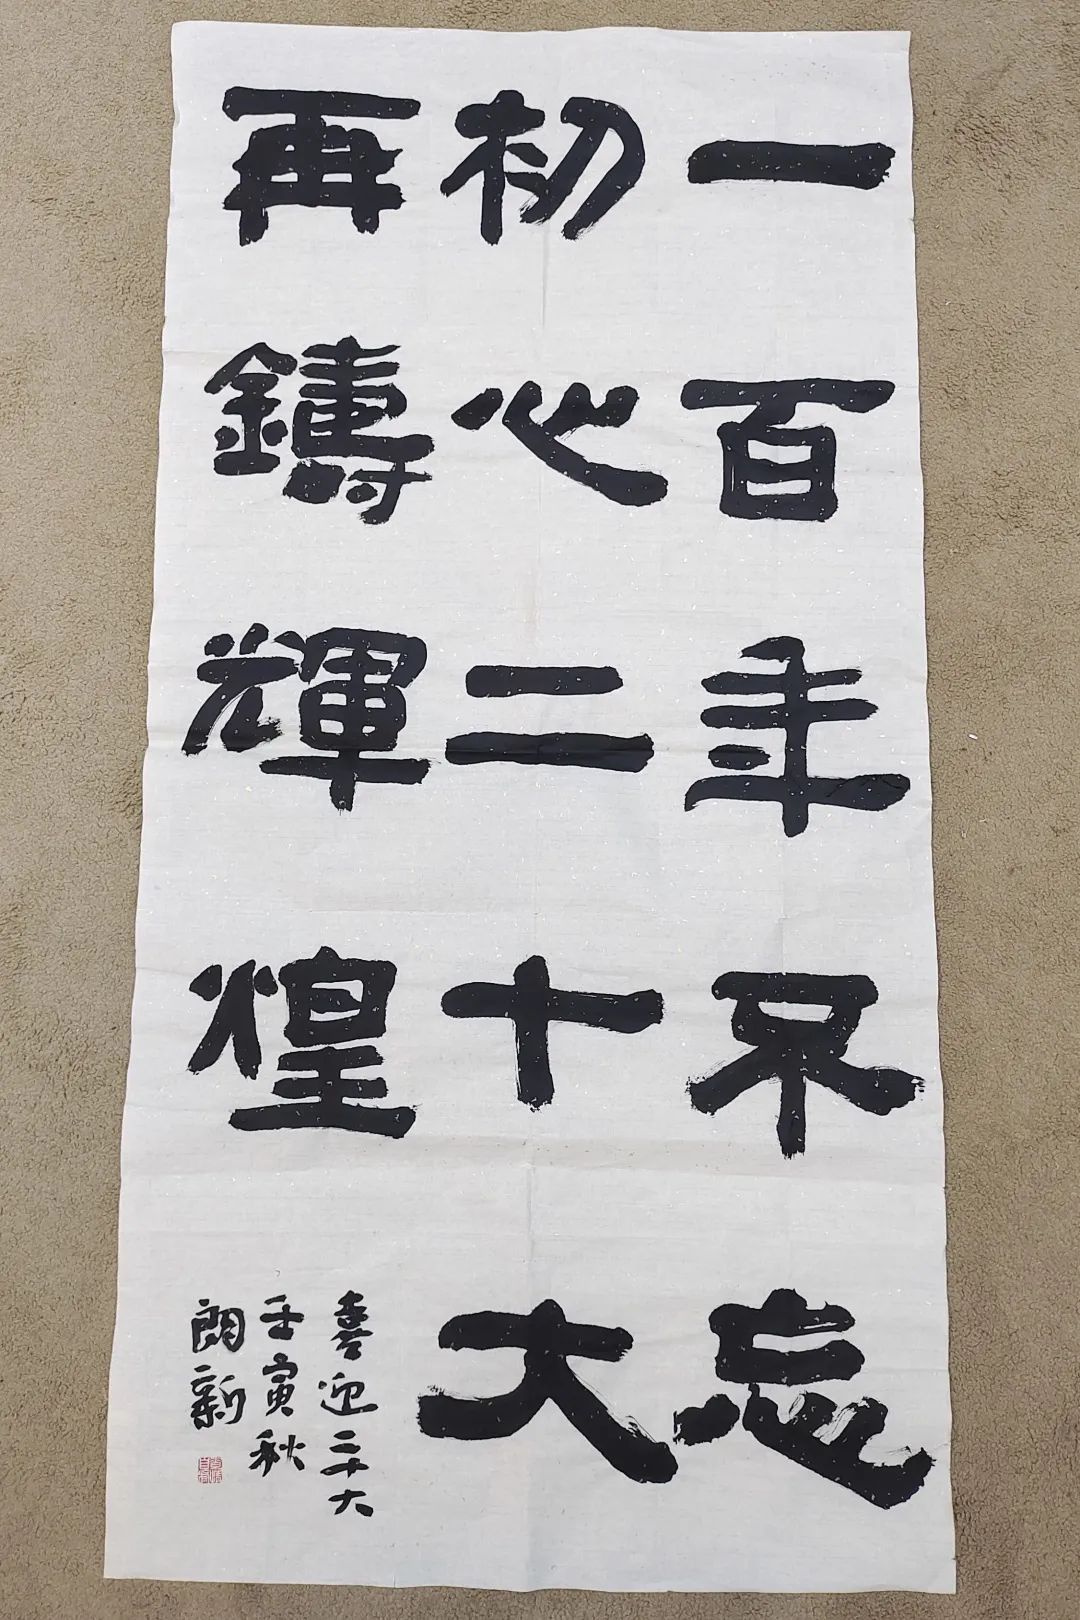 一百年不忘
初心二十大
再鑄輝煌
喜迎二十大
壬寅秋
朗新